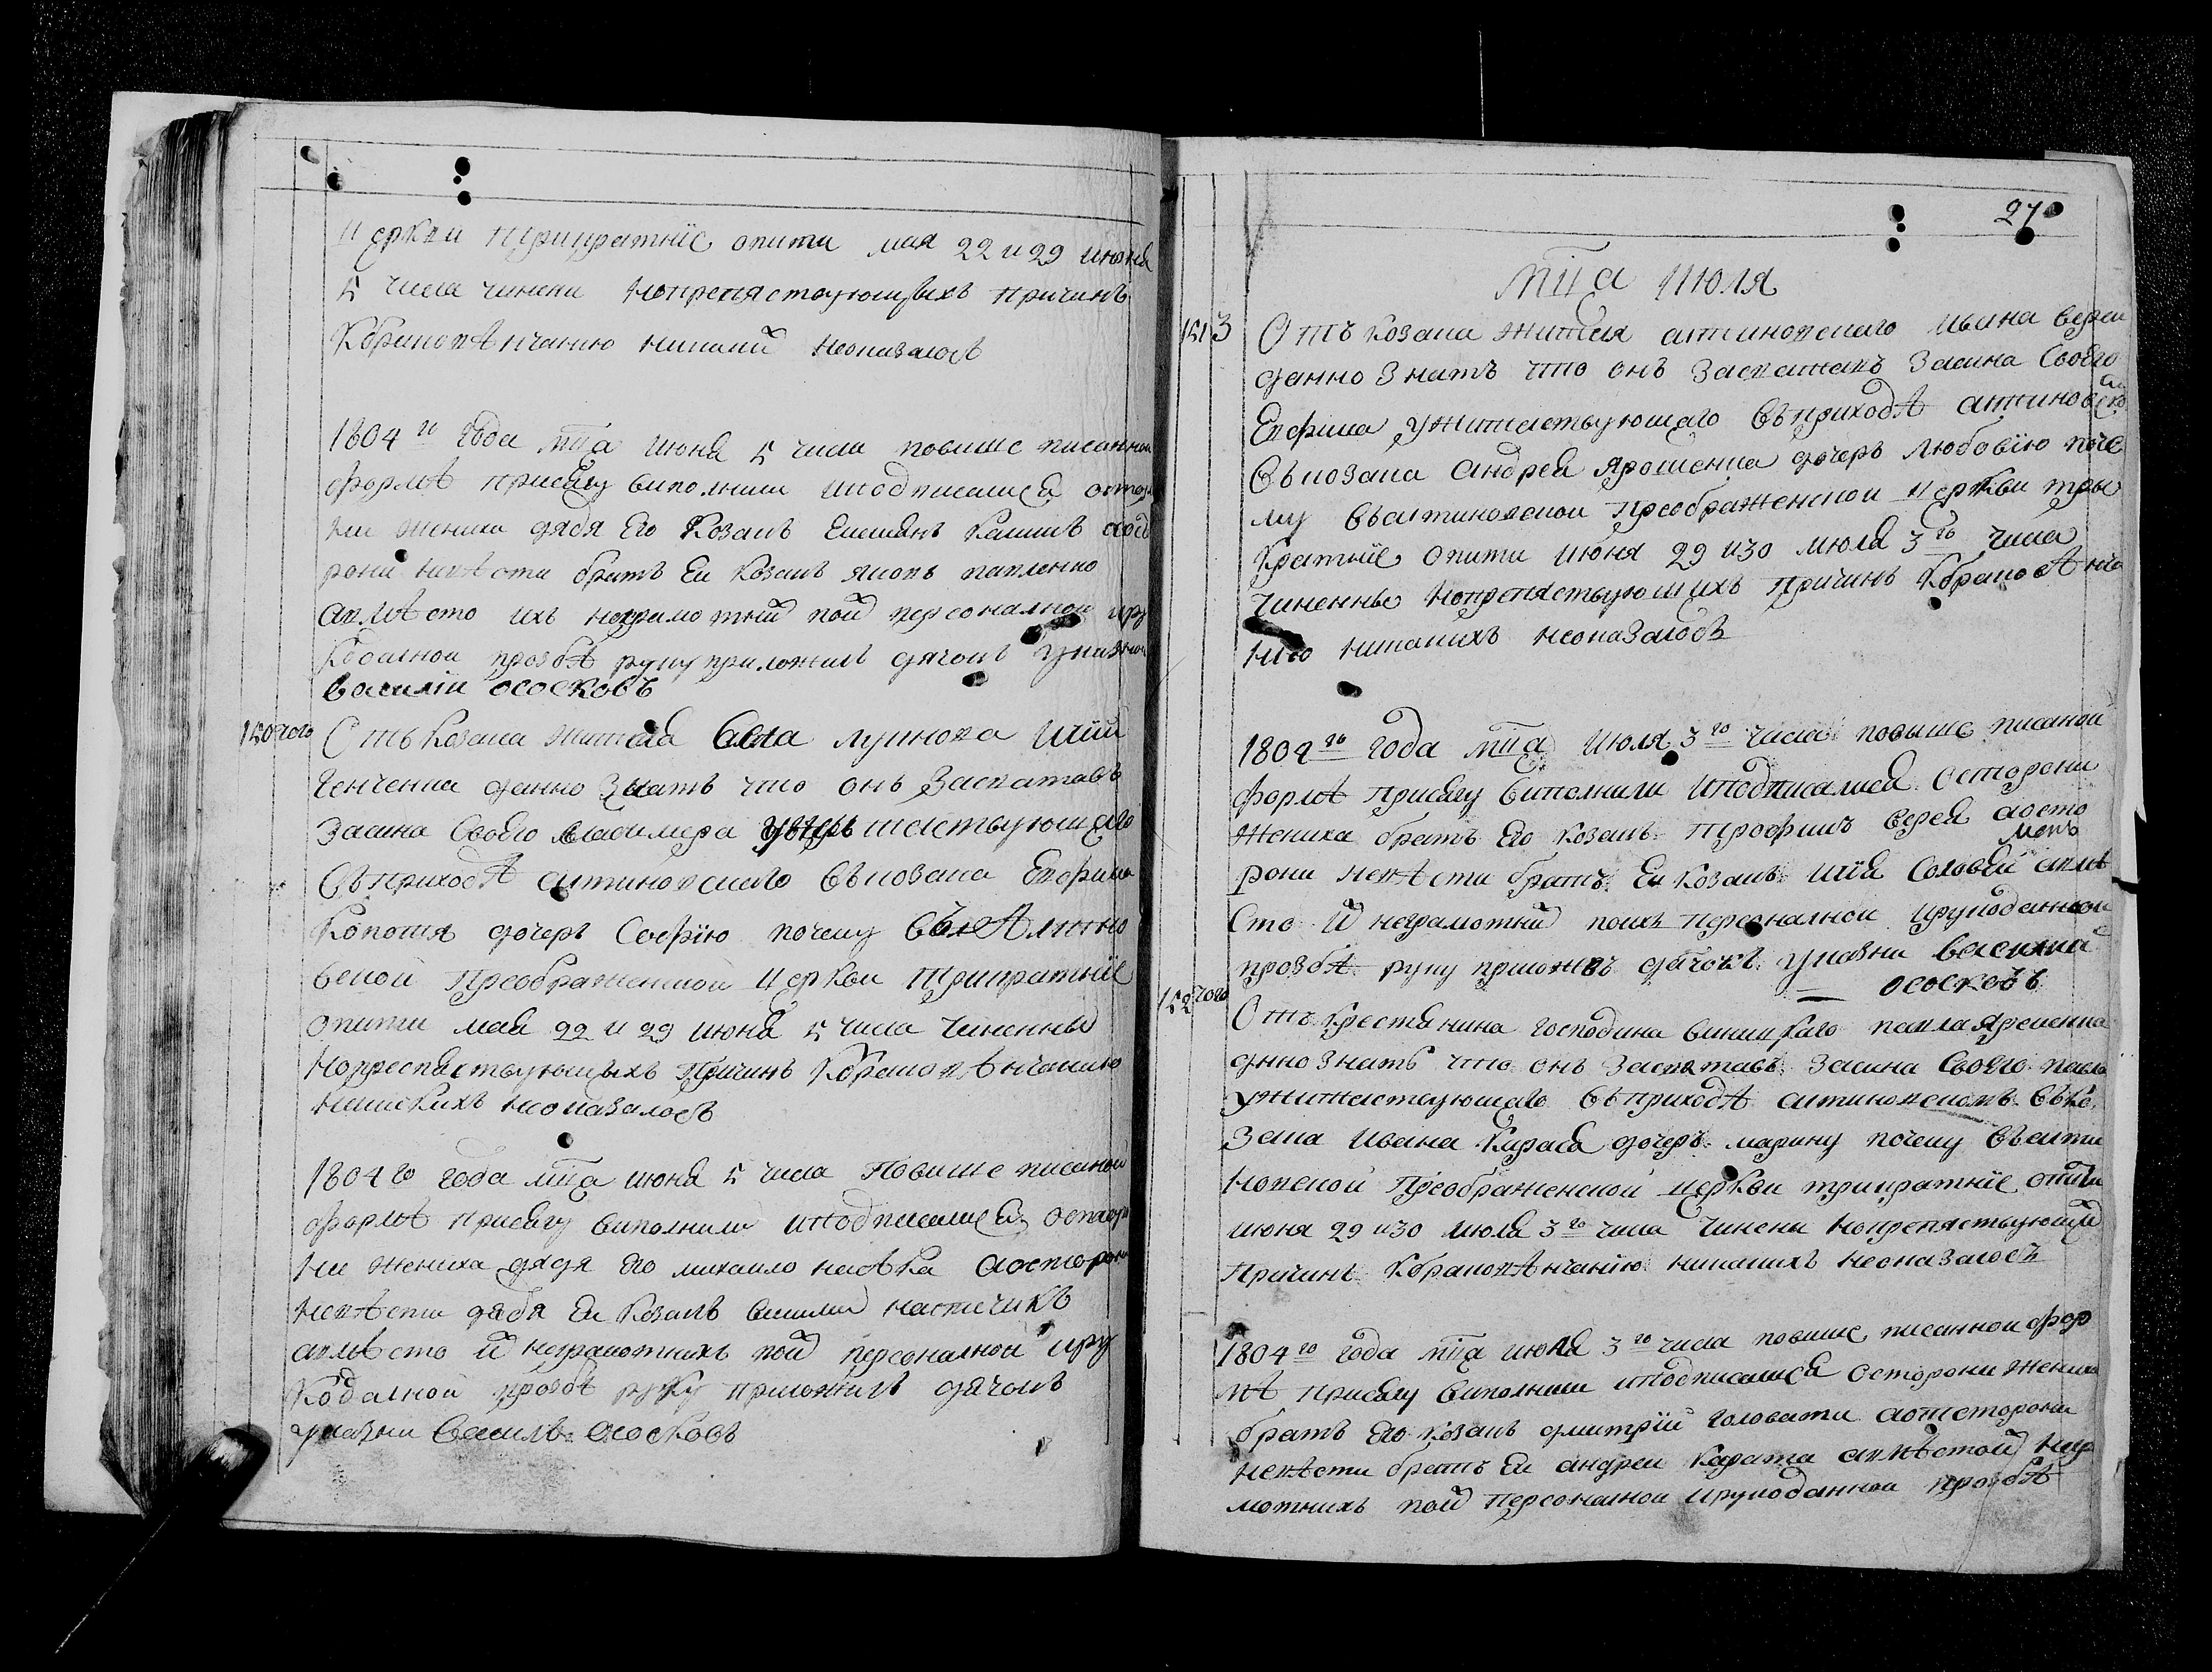 церкви трикратніе опити мая 22 и 29 июня
5 числа чинени нопрепяствующыхъ причинъ
кбрако вѣнчанию никакй неоказалось
1804 го года мца июня 5 числа повише писанной
формѣ присягу виполнили иподписалися остор
ни жениха дядя его козакъ Емелянъ
рони невѣсти братъ ея козакъ яковъ павленко
авмѣсто ихъ неграмотнй пой персоналной иру
кодалной прозбѣ руку приложилъ дячокъ указни
василіи ососковъ
150 ч 7ого
Отъ козака жителя села лушнока Илии
ченченка данно знать что онъ засватавъ
засина своего владимера жителствующаго
въприходѣ атиновского въкозака Евфима
Копотя дочеръ Софію почему
вской преображенской церкви трикратніе
опити мая 22 и 29 июня 5 числа чиненны
нопрепяствующыхъ причинъ кбрако вѣнчанию
никакихъ неоказалось
1804 го года мца июня 5 числа повише писаной
формѣ присягу виполнили иподписалися остор
ни жениха дядя его михаило аосторони
невѣсти дядя ея козакъ
авмѣсто й неграмотнихъ пой персоналной иру
кодалной прозбѣ руку приложилъ дячокъ
указни василь ососковъ
27
мца Июля
151 3
Отъ козака жителя атиновского ивана вереи
данно знатъ что онъ засватавъ засина своего
Евфима ужителствующаго въприходѣ атиновско
въкозака андрея ярошенка дочеръ любовію поче
му ватиновской преображенской церкви тры
кратніе опити июня 29 и30 июля 3го числа
чиненны нопрепяствующихъ причинъ кбраковѣнча
нию никакихъ неоказалось
1804го года мца июля 3го числа повыше писаной
формѣ присягу виполнили иподписалися осторони
жениха братъ его козакъ трофимъ верея аосто
рони невѣсти братъ ея козакъ илія соловей авмѣ
сто й неграмотнй поихъ персоналной ирукоданной
прозбѣ руку приложивъ дячокъ указни василий
ососковъ
152 7ого
Отъ крестянина господина павла яременка
днно знать что онъ засватавъ засина своего павла
ужителствующаго въприходѣ атиновскомъ въко
зака ивана карася дочеръ марину почему въати
новской преображенской церкви трикратніе опити
июня 29 и30 июля 3го числа чинены нопрепяствующй
причинъ кбраковѣнчанію никакихъ неоказалось
1804го года мца июля 3го числа повише писанной фор
мѣ присягу виполнили иподписалися осторони жениха
братъ его козакъ дмитрій головати аотсторони
невѣсти братъ ея андреи авмѣстой негра
мотнихъ пой персоналной ирукоданной прозбѣ